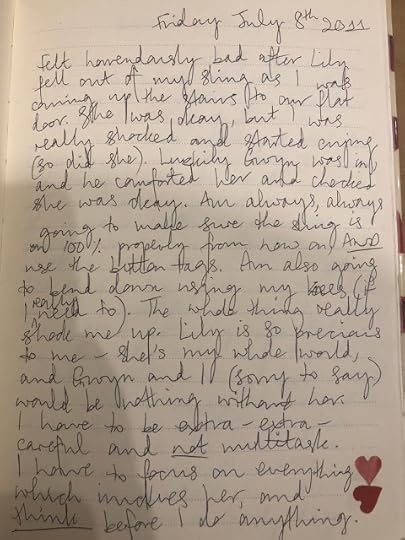 Friday July 8th 2011
Felt horrendously bad after Lily
fell out of my sling as I was
coming up the stairs to our flat
door. She was okay, but I was
really shocked and started crying
(so did she). Luckily Gwyn was in,
and he comforted her and checked
she was okay. Am always, always
going to make sure the sling is
on 100% properly from now on, AND
use the button tags. Am also going
to bend down using my knees (if
I really need to). The whole thing really
shook me up. Lily is so precious
to me - she's my whole world,
and Gwyn and I (sorry to say)
would be nothing without her.
I have to be extra-extra-
careful and not multitask.
I have to focus on everything
which involves her, and
think before I do anything.